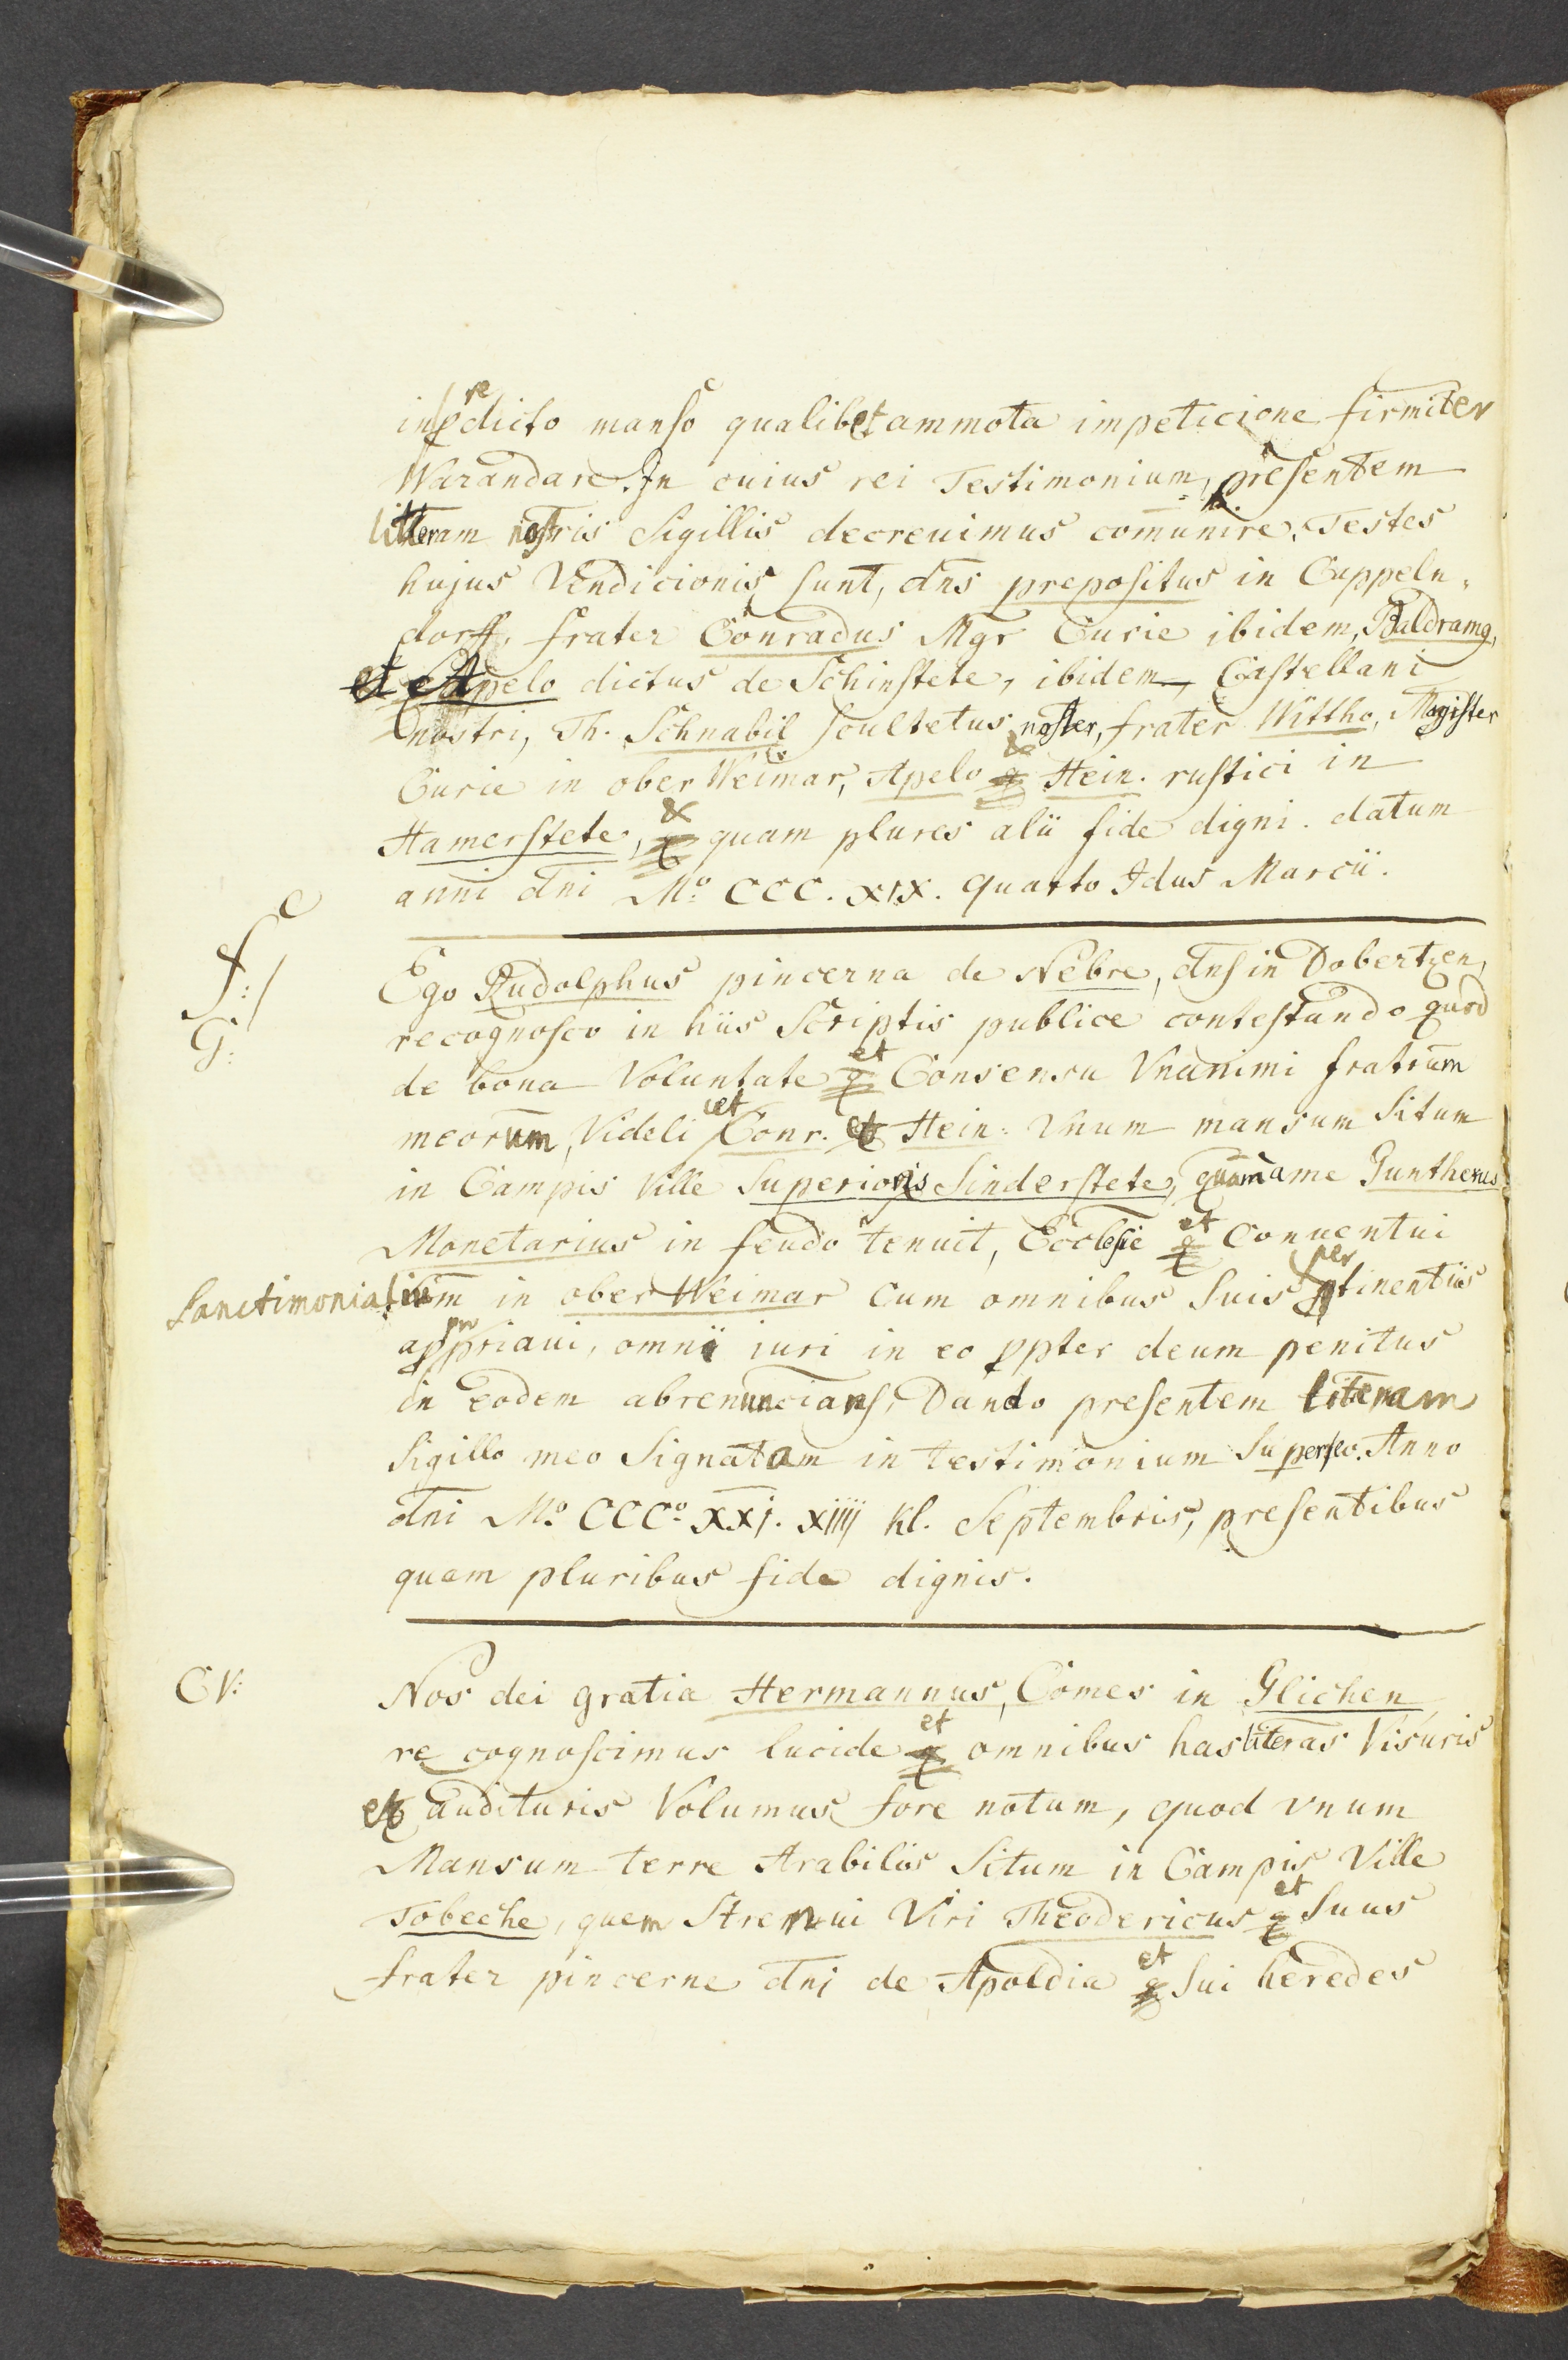 in predicto manso qualibet ammota impeticione firmiter
Warandare. In cuius rei Testimonium, presentem
litteram nostris Sigillis decreuimus comunire. Testes
hujus Vendicionis sunt, dns prepositus in Cappeln=
dorff, frater Conradus Mgr Curie ibidem, Baldramq,
et Apelo dictus de Schinstete, ibidem, Castellani
nostri, Th. Schnabil scultetus noster, frater Wittho, Magister
Curie in ober Weimar, Apelo & Hein. rustici in
Hamerstete, & quam plures alii fide digni. datum
anni dni Mo. CCC. XIX. quarto Idus Marcii.
C
f:/
G:
Ego Rudolphus pincerna de Nebre, dns in Dobertzen,
recognosco in hiis Scriptis publice contestando quod
de bona Voluntate et Consensu Vnanimi fratrum
meorum, Videlicet Conr. et Hein: Vnum mansum Situm
in Campis Ville Superioris Sinderstete, quem a me Guntherus
Monetarius in feudo tenuit, Ecclesie et Conuentui
Sanctimonialium in ober Weimar Cum omnibus Suis pertinentiis
appropriaui, omni iuri in eo ppter deum penitus
in eodem abrenuncians, Dando presentem literam
Sigillo meo Signatam in testimonium Super eo. Anno
dni Mo. CCCo. XXj. xiiij Kl. Septembris, presentibus
quam pluribus fide dignis.
CV:
Nos dei gratia Hermannus, Comes in Glichen
re cognoscimus lucide et omnibus has literas Visuris
et audituris Volumus fore notum, quod vnum
Mansum terre Arabilis Situm in Campis Ville
Tobeche, quem Strenui Viri Theodericus et Suus
frater pincerne dnj de Apoldia et Sui heredes